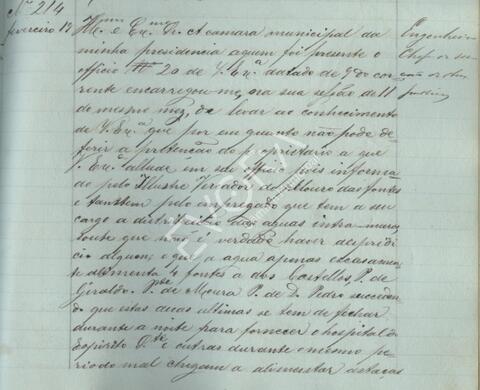 Nº 214
fevereiro 13
Illmo. e Exmo. Sr. A camara municipal da
minha presidencia aquem foi presente o
officio Nº 20 de V. Exª datado de 9 do cor
rente encarregou-me, ora sua sessão de 11
do mesmo mez, de levar ao conhecimento
de V. Exª que por em quanto não pode de
ferir a pretenção do proprietario a que
V. Exª allude em seu officio pois informa
do pelo Illustre Vereador do pelouro das fontes
e tambem pelo empregado que tem a seu
cargo a distribuição das aguas intra-muros
que não é verdade haver desperdi
cio algum, e que a agua apenas escassamen
te alimenta 4 fontes a dos Castellos, P. de
Geraldo, Pta. de Moura P. de D. Pedro succeden
do que estas duas ultimas se tem de fechar
durante a noite para fornecer o hospital do
Espirito Sto. e outras durante o mesmo pe
riodo mal chegam a alimentar
Engenheiro
Chefe
publicas
EVORA